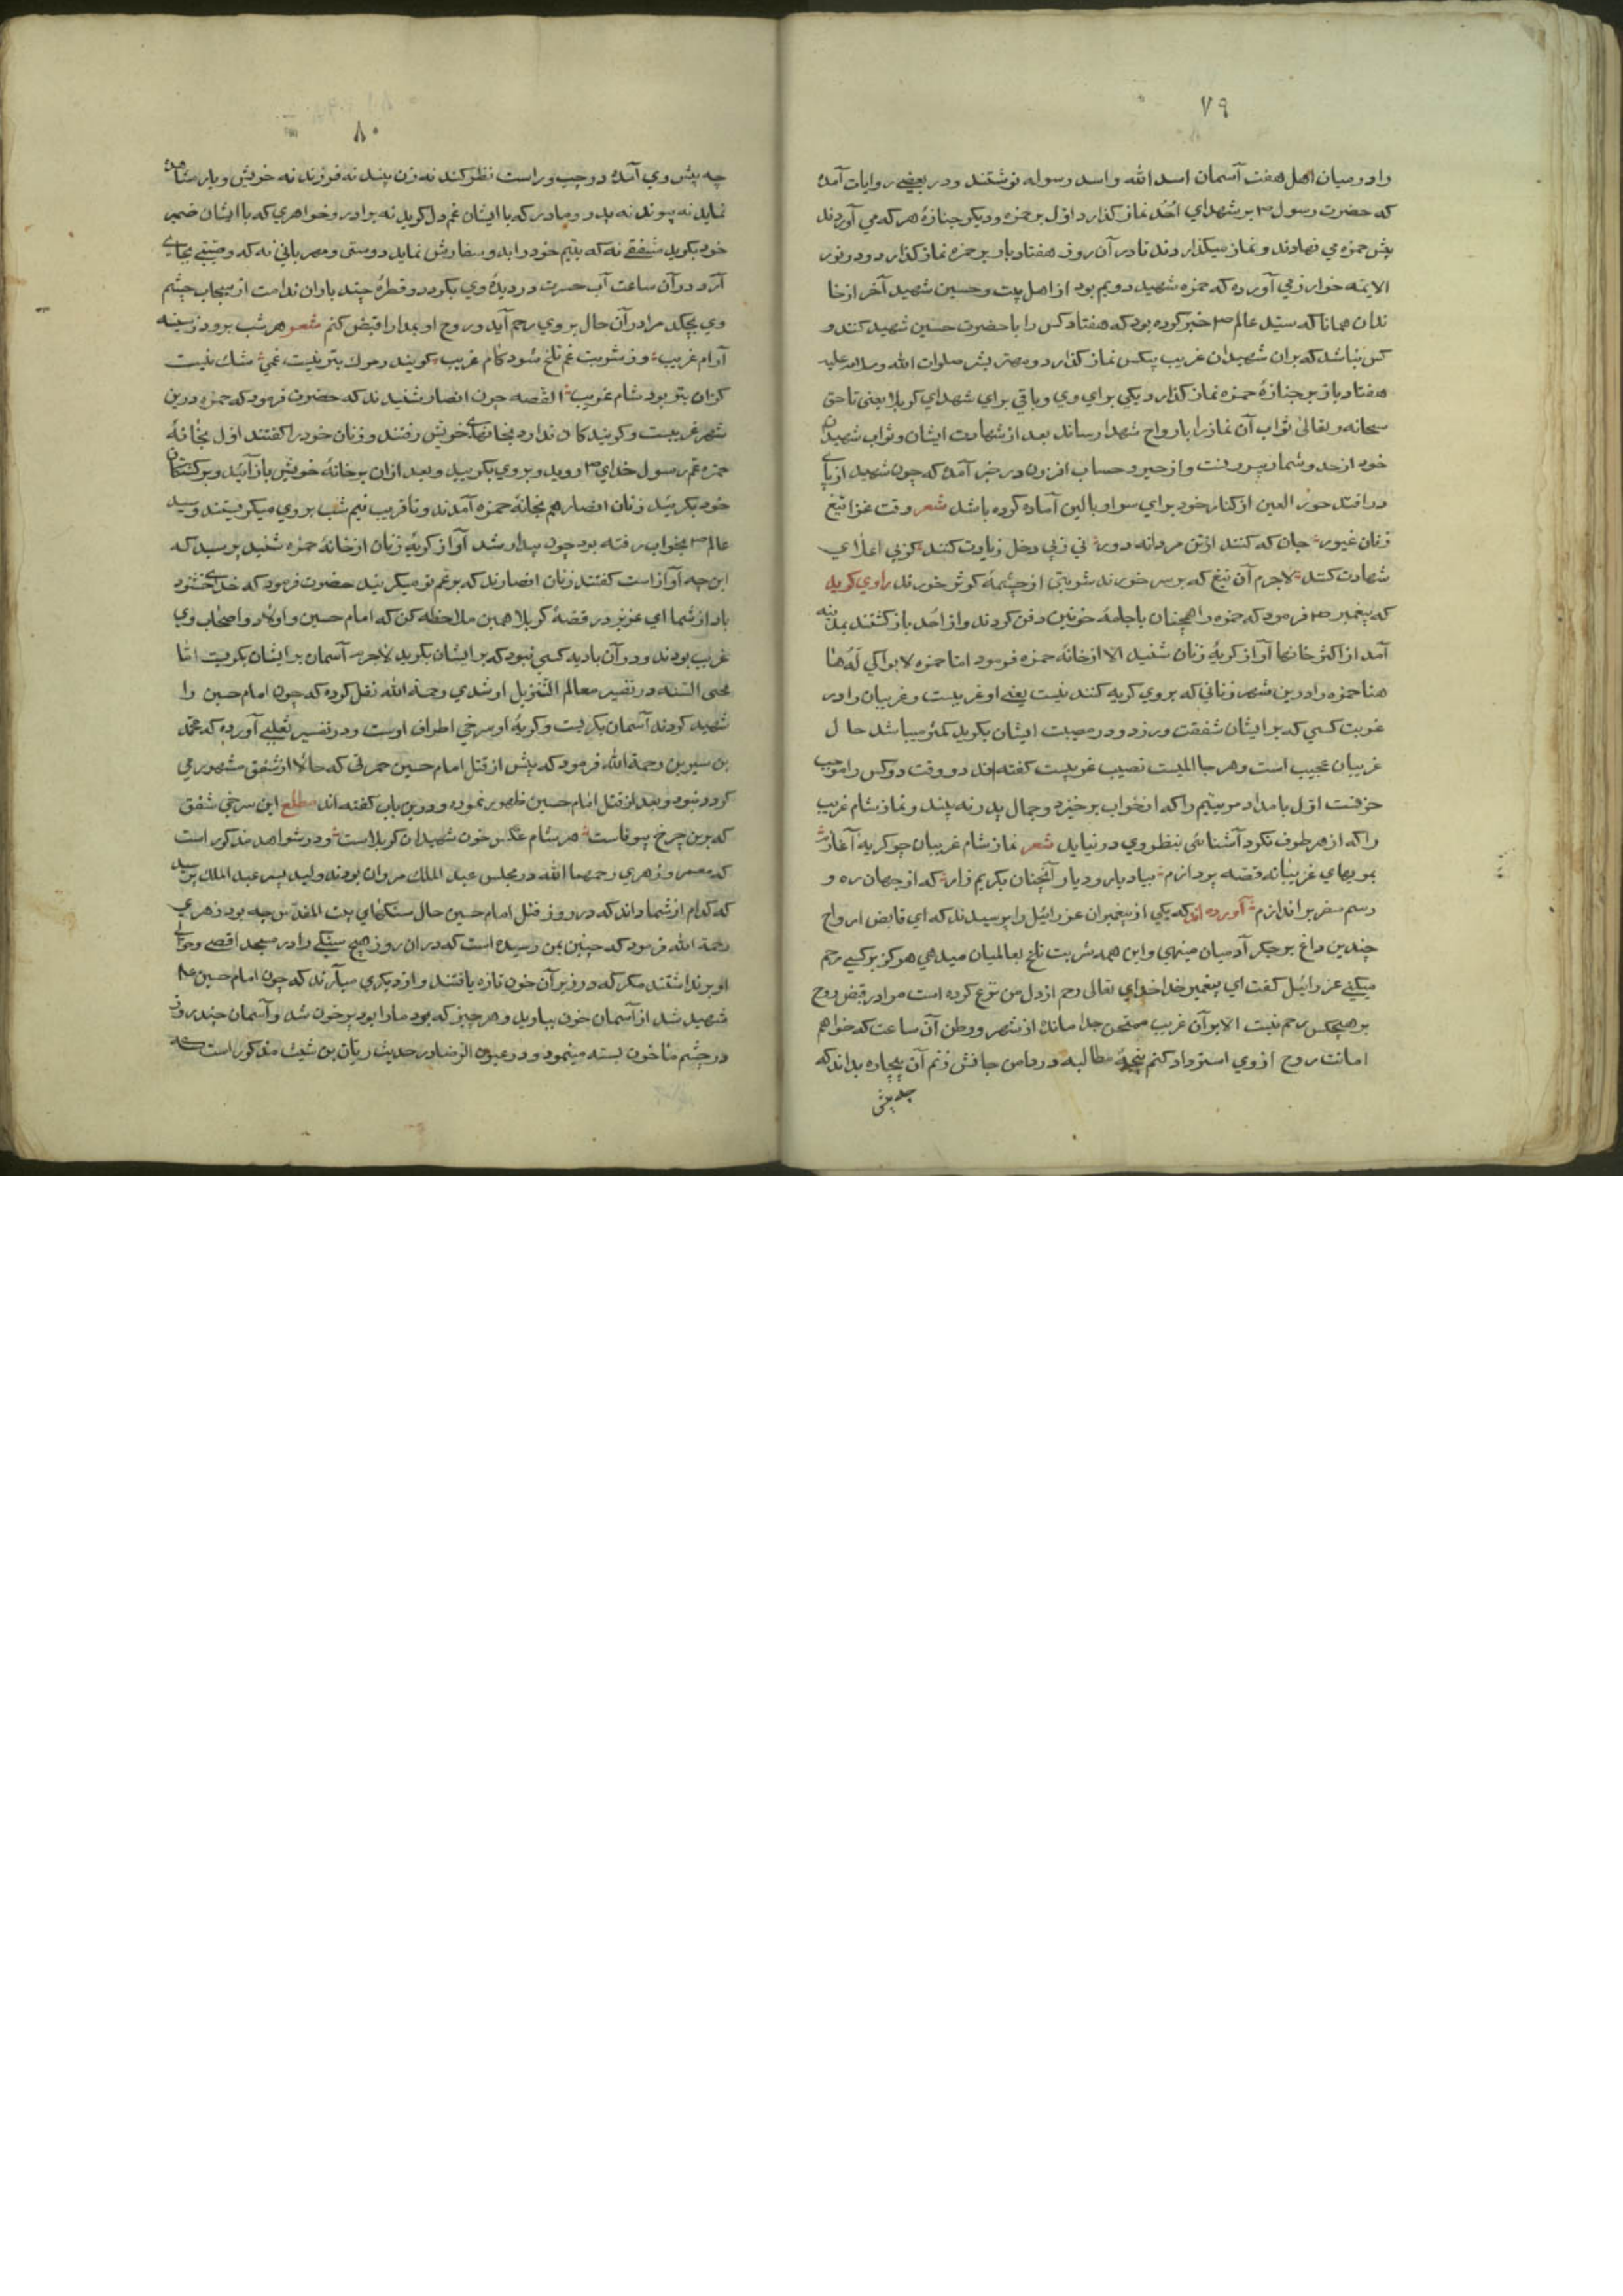 ۷۹
را در میان اهل هفت آسمان اسد الله و اسد رسوله نوشتند و در بعضی روایات آمده
که حضرت رسول ص بر شهدای اُحُد نماز گذارد اول بر حمزه و دیگر جنازهٔ هر که می آوردند
پیش حمزه می نهادند و نماز میگذاردند تا در آن روز هفتاد بار بر حمزه نماز گذارد و در نور
الایمه خوارزمی آورده که حمزه شهید دویم بود از اهل بیت و حسین شهید آخر از خا
ندان همانا که سید عالم ص خبر کرده بود که هفتاد کس را با حضرت حسین شهید کنند و
کس نباشد که بران شهیدان غریب بیکس نماز گذارد و مهتر بشر صلوات الله و سلامه علیه
هفتاد باز بر جنازهٔ حمزه نماز گذارد یکی برای وی و باقی برای شهدای کربلا یعنی تا حق
سبحانه و تعالی ثواب آن نماز را بارواح شهدا رساند بعد از شهادت ایشان و ثواب شهیدان
خود از حد و شمار بیرونست و از حیز و حساب افزون در خبر آمده که چون شهید از پای
در افتد حور العین از کنار خود برای سر او بالین آماده کرده باشد شعر وقت غزا تیغ
زنان غیور جان که کنند از تن مردانه دور نی ز پی دخل زیادت کنند کز پی اعلای
شهادت کنند لاجرم آن تیغ که بر سر خورند شربتی از چشمهٔ کوثر خورند راوی گوید
که پیغمبر ص فرمود که حمزه را همچنان با جامهٔ خونین دفن کردند و از اُحد باز گشتند بمدینه
آمد از اکثر خانها آواز گریهٔ زنان شنید الا از خانهٔ حمزه فرمود اما حمزه لا بواکی لَهُ هنا
هنا حمزه را درین شهر زنانی که بر وی گریه کنند نیست یعنی او غریبست و غریبان را در
غربت کسی که بر ایشان شفقت ورزد و در مصیبت ایشان بگرید کمتر میباشد حال
غریبان عجیب است و هر جا المیست نصیب غریبست گفته اند دو وقت دو کس را موجب
حزنست اول بامداد مر یتیم را که از خواب برخیزد و جمال پدر نه بیند و نماز شام غریب
را که از هر طرف نگرد آشنائی بنظر وی در نیاید شعر نماز شام غریبان چو گریه آغازم
بمویهای غریبانه قصه پردازم بیاد یار و دیار آنچنان بگریم زار که از جهان ره و
رسم سفر براندازم آورده اند که یکی از پیغمبران عزرائیل را پرسیدند که ای قابض ارواح
چندین داغ بر جگر آدمیان مینهی و این همه شربت تلخ بعالمیان میدهی هرگز بر کسی رحم
میکنی عزرائیل گفت ای پیغمبر خدا خدای تعالی رحم از دل من نزع کرده است مرا در قبض روح
بر هیچکس رحم نیست الا بر آن غریب ممتحن جدا مانده از شهر و وطن آن ساعت که خواهم
امانت روح از وی استرداد کنم پنجهٔ مطالبه در دامن جانش زنم آن بیچاره بداند که
چه پیش
۸۰
چه پیش وی آمده در چپ و راست نظر کند نه زن بیند نه فرزند نه خویش و یار مشاهده
نماید نه پیوند نه پدر و مادر که با ایشان غم دل گوید نه برادر و خواهری که با ایشان ضمیر
خود بگوید مشفقی نه که یتیم خود را بدو سفارش نماید دوستی و مهربانی نه که وصیتی بجای
آرد در آن ساعت آب حسرت در دیدهٔ وی بگردد و قطرهٔ چند باران ندامت از سحاب چشم
وی بچکد مرا در آن حال بر وی رحم آید و روح او بمدارا قبض کنم شعر هر شب برود ز سینه
آرام غریب وز شربت غم تلخ شود کام غریب گویند ز مرگ بتر نیست غمی شک نیست
کزان بتر بود شام غریب القصه چون انصار شنیدند که حضرت فرمود که حمزه درین
شهر غریبست و گویندگان ندارد بخانهای خویش رفتند و زنان خود را گفتند اول بخانهٔ
حمزه عَمّ رسول خدای ص روید و بر وی بگریید و بعد ازان بر خانهٔ خویش باز آئید و بر کشتگان
خود بگریید زنان انصار هم بخانهٔ حمزه آمدند و تا قریب نیم شب بر وی میگریستند و سید
عالم ص بخواب رفته بود چون بیدار شد آواز گریهٔ زنان از خانهٔ حمزه شنید پرسید که
این چه آواز است گفتند زنان انصارند که بر عَم تو میگریند حضرت فرمود که خدای خشنود
باد از شما ای عزیز در قصهٔ کربلا همین ملاحظه کن که امام حسین و اولاد و اصحاب وی
غریب بودند و در آن بادیه کسی نبود که بر ایشان بگرید لاجرم آسمان بر ایشان بگریست اما
محیی السنه در تفسیر معالم التنزیل از سُدی رحمة الله نقل کرده که چون امام حسین را
شهید کردند آسمان بگریست و گریهٔ او سرخی اطراف اوست و در تفسیر ثعلبی آورده که محمد
بن سیرین رحمة الله فرمود که پیش از قتل امام حسین حمرتی که حالا از شفق مشهور می
گردد نبود و بعد از قتل امام حسین ظهور نموده و درین باب گفته اند مطلع این سرخی شفق
که برین چرخ بیوفاست هر شام عکس خون شهیدان کربلاست و در شواهد مذکور است
که معمر و زهری رحمهما الله در مجلس عبد الملک مروان بودند ولید پسر عبد الملک پرسید
که کدام از شما داند که در روز قتل امام حسین حال سنگهای بیت المقدس چه بود زهری
رحمة الله فرمود که چنین بمن رسیده است که در ان روز هیچ سنگی را در مسجد اقصی و حوالی
او برنداشتند مگر که در زیر آن خون تازه یافتند و از دیگری میآرند که چون امام حسین ع
شهید شد از آسمان خون ببارید و هر چیز که بود ما را بود پر خون شد و آسمان چند روز
در چشم ما خون بسته مینمود و در عیون الرضا در حدیث ریّان بن شبیب مذکور است که